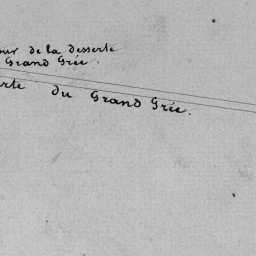 our de la Desserte
Grand Grée.
rte du Grand Grée.